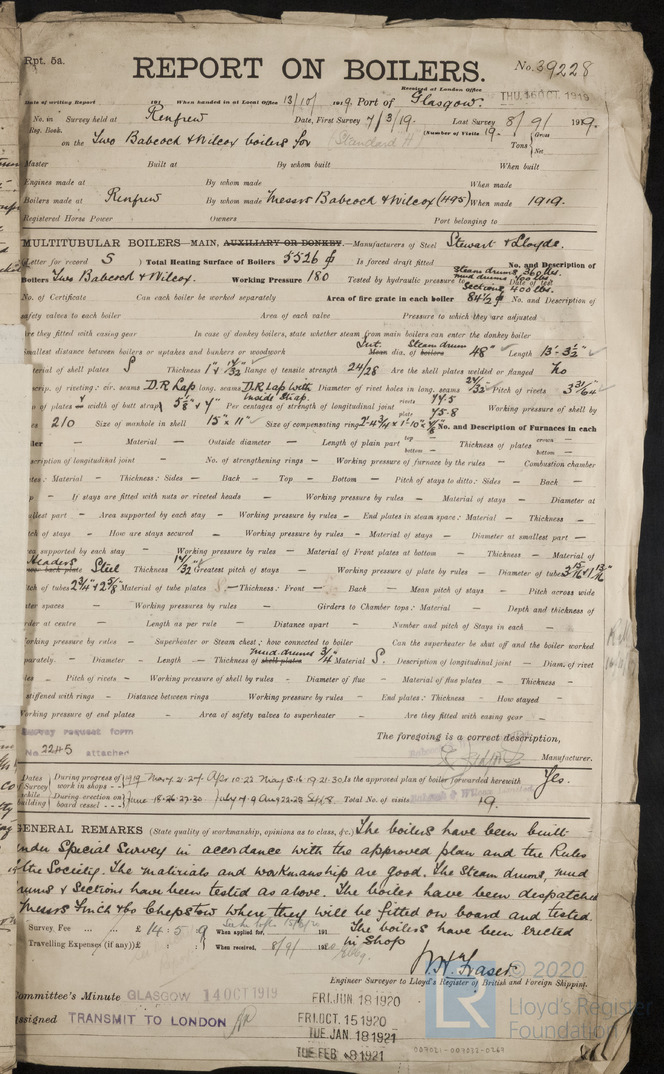 Rpt. 5a.
REPORT ON BOILERS.
No. 39228
Received at London Office
THU. 16 OCT 1919
Date of writing Report 191 When handed in at Local Office 13/10/ 1919. Port of Glasgow.
No. in Survey held at Renfrew Date, First Survey 7/3/19. Last Survey 8/9/ 1919.
Reg. Book. (Number of Visits 19.
on the Two Babcock & Wilcox boilers for (Standard H) Tons { Gross Net
Master Built at By whom built When built
Engines made at By whom made When made
Boilers made at Renfrew By whom made Messrs Babcock & Wilcox (H95) When made 1919.
Registered Horse Power Owners Port belonging to
MULTITUBULAR BOILERS—MAIN, AUXILIARY OR DONKEY.—Manufacturers of Steel Stewart & Lloyds.
Letter for record S ) Total Heating Surface of Boilers 5526 ф Is forced draft fitted No. and Description of
Boilers Two Babcock & Wilcox. Working Pressure 180 Tested by hydraulic pressure to Steam drums 360 lbs. mud drums 400 lbs. Sections 400 lbs. Date of test
No. of Certificate Can each boiler be worked separately Area of fire grate in each boiler 84½ ф No. and Description of
safety valves to each boiler Area of each valve Pressure to which they are adjusted
Are they fitted with easing gear In case of donkey boilers, state whether steam from main boilers can enter the donkey boiler
Smallest distance between boilers or uptakes and bunkers or woodwork Int. Mean dia. of boilers Steam drum 48" Length 13'-3½"
Material of shell plates S Thickness 1" & 17/32 Range of tensile strength 24/28 Are the shell plates welded or flanged no
Descrip. of riveting: cir. seams D.R Lap long. seams D.R Lap with inside strap. Diameter of rivet holes in long. seams Pitch of rivets 3 31/64"
Lap of plates or width of butt straps 5⅛" & 4" Per centages of strength of longitudinal joint rivets 74.5 plate 75.8 Working pressure of shell by
rules 210 Size of manhole in shell 15" x 11" Size of compensating ring No. and Description of Furnaces in each
boiler — Material — Outside diameter — Length of plain part top bottom — Thickness of plates crown bottom —
Description of longitudinal joint — No. of strengthening rings — Working pressure of furnace by the rules — Combustion chamber
plates: Material — Thickness: Sides — Back — Top — Bottom — Pitch of stays to ditto: Sides — Back —
Top — If stays are fitted with nuts or riveted heads — Working pressure by rules — Material of stays — Diameter at
smallest part — Area supported by each stay — Working pressure by rules — End plates in steam space: Material — Thickness —
Pitch of stays — How are stays secured — Working pressure by rules — Material of stays — Diameter at smallest part —
Area supported by each stay — Working pressure by rules — Material of Front plates at bottom — Thickness — Material of
Headers Lower back plate Steel Thickness 17/32" Greatest pitch of stays — Working pressure of plate by rules — Diameter of tubes 3 3/16" & 1 13/16"
Pitch of tubes 2¾" & 2⅝" Material of tube plates S — Thickness: Front — Back — Mean pitch of stays — Pitch across wide
water spaces — Working pressures by rules — Girders to Chamber tops: Material — Depth and thickness of
girder at centre — Length as per rule — Distance apart — Number and pitch of Stays in each —
Working pressure by rules — Superheater or Steam chest; how connected to boiler Can the superheater be shut off and the boiler worked
separately — Diameter — Length — Thickness of shell plates mud drums ¾" Material S. Description of longitudinal joint — Diam. of rivet
holes — Pitch of rivets — Working pressure of shell by rules — Diameter of flue — Material of flue plates — Thickness —
If stiffened with rings — Distance between rings Working pressure by rules — End plates: Thickness — How stayed
Working pressure of end plates — Area of safety valves to superheater — Are they fitted with easing gear —
Survey request form
No. 2245 attached
The foregoing is a correct description,
Manufacturer.
Dates of Survey while building
During progress of work in shops - - 1919 Mar 7.21.27. Apr 10.22 May 8.16.19.21.30
During erection on board vessel - - - June 18.26.27.30 July 7.9 Aug 22.28 Sep 8 Total No. of visits 19.
Is the approved plan of boiler forwarded herewith Yes.
GENERAL REMARKS (State quality of workmanship, opinions as to class, &c.) The boilers have been built
under Special Survey in accordance with the approved plan and the Rules
of the Society. The materials and workmanship are good. The Steam drums, mud
drums & Sections have been tested as above. The boiler have been despatched
Messrs Finch & Co Chepstow where they will be fitted on board and tested
The boilers have been erected in shop
Survey Fee ... ... £ 14 : 5 : 9 When applied for, 191
Travelling Expenses (if any) £ : : When received, 8/9/ 1920
W. H. Fraser.
Engineer Surveyor to Lloyd's Register of British and Foreign Shipping.
Committee's Minute GLASGOW 14 OCT 1919
Assigned TRANSMIT TO LONDON
FRI. JUN 18 1920
FRI. OCT. 15 1920
TUE. JAN. 18 1921
TUE FEB 8 1921
© 2020
LR
Lloyd's Register
Foundation
007021-007031-0269